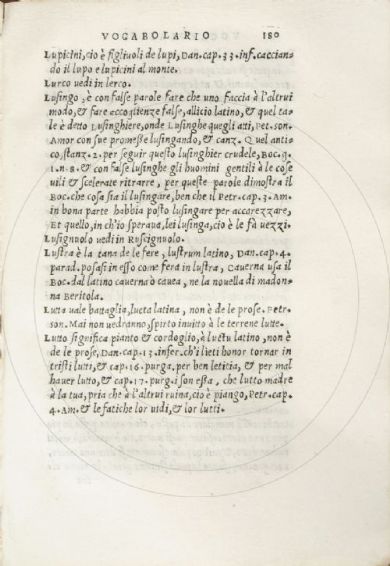 VOCABOLARIO 180
Lupicini, cio è figliuoli de lupi, Dan. cap. 33. inf. caccian=
do il lupo e lupicini al monte.
Lurco uedi in lerco.
Lusingo, è con false parole fare che uno faccia à l'altrui
modo, & fare accoglienze false, allicio latino, & quel ta=
le è detto Lusinghiere, onde Lusinghe quegli atti, Pet. son.
Amor con sue promesse lusingando, & canz. Quel antico
co, stanz. 2. per seguir questo lusinghier crudele, Boc. g.
1. n. 8. & con false lusinghe gli huomini gentili à le cose
uili & scelerate ritrarre, per queste parole dimostra il
Boc. che cosa sia il lusingare, ben che il Petr. cap. 3. Am.
in bona parte habbia posto lusingare per accarezzare,
Et quello, in ch'io speraua, lei lusinga, cio è le fà uezzi.
Lusignuolo uedi in Ruscignuolo.
Lustra è la tana de le fere, lustrum latino, Dan. cap. 4.
parad. posasi in esso come fera in lustra, Cauerna usa il
Boc. dal latino cauerna ò cauea, ne la nouella di madon=
na Beritola.
Lutta uale battaglia, lucta latina, non è de le prose. Petr.
son. Mai non uedranno, spirto inuitto à le terrene lutte.
Lutto significa pianto & cordoglio, à luctu latino, non è
de le prose, Dan. cap. 13. infer. ch'i lieti honor tornar in
tristi lutti, & cap. 16. purga. per ben letitia, & per mal
hauer lutto, & cap. 17. purg. i son esta, che lutto madre
à la tua, pria che à l'altrui ruina, cio è piango, Petr. cap.
4. Am. & le fatiche lor uidi, & lor lutti.